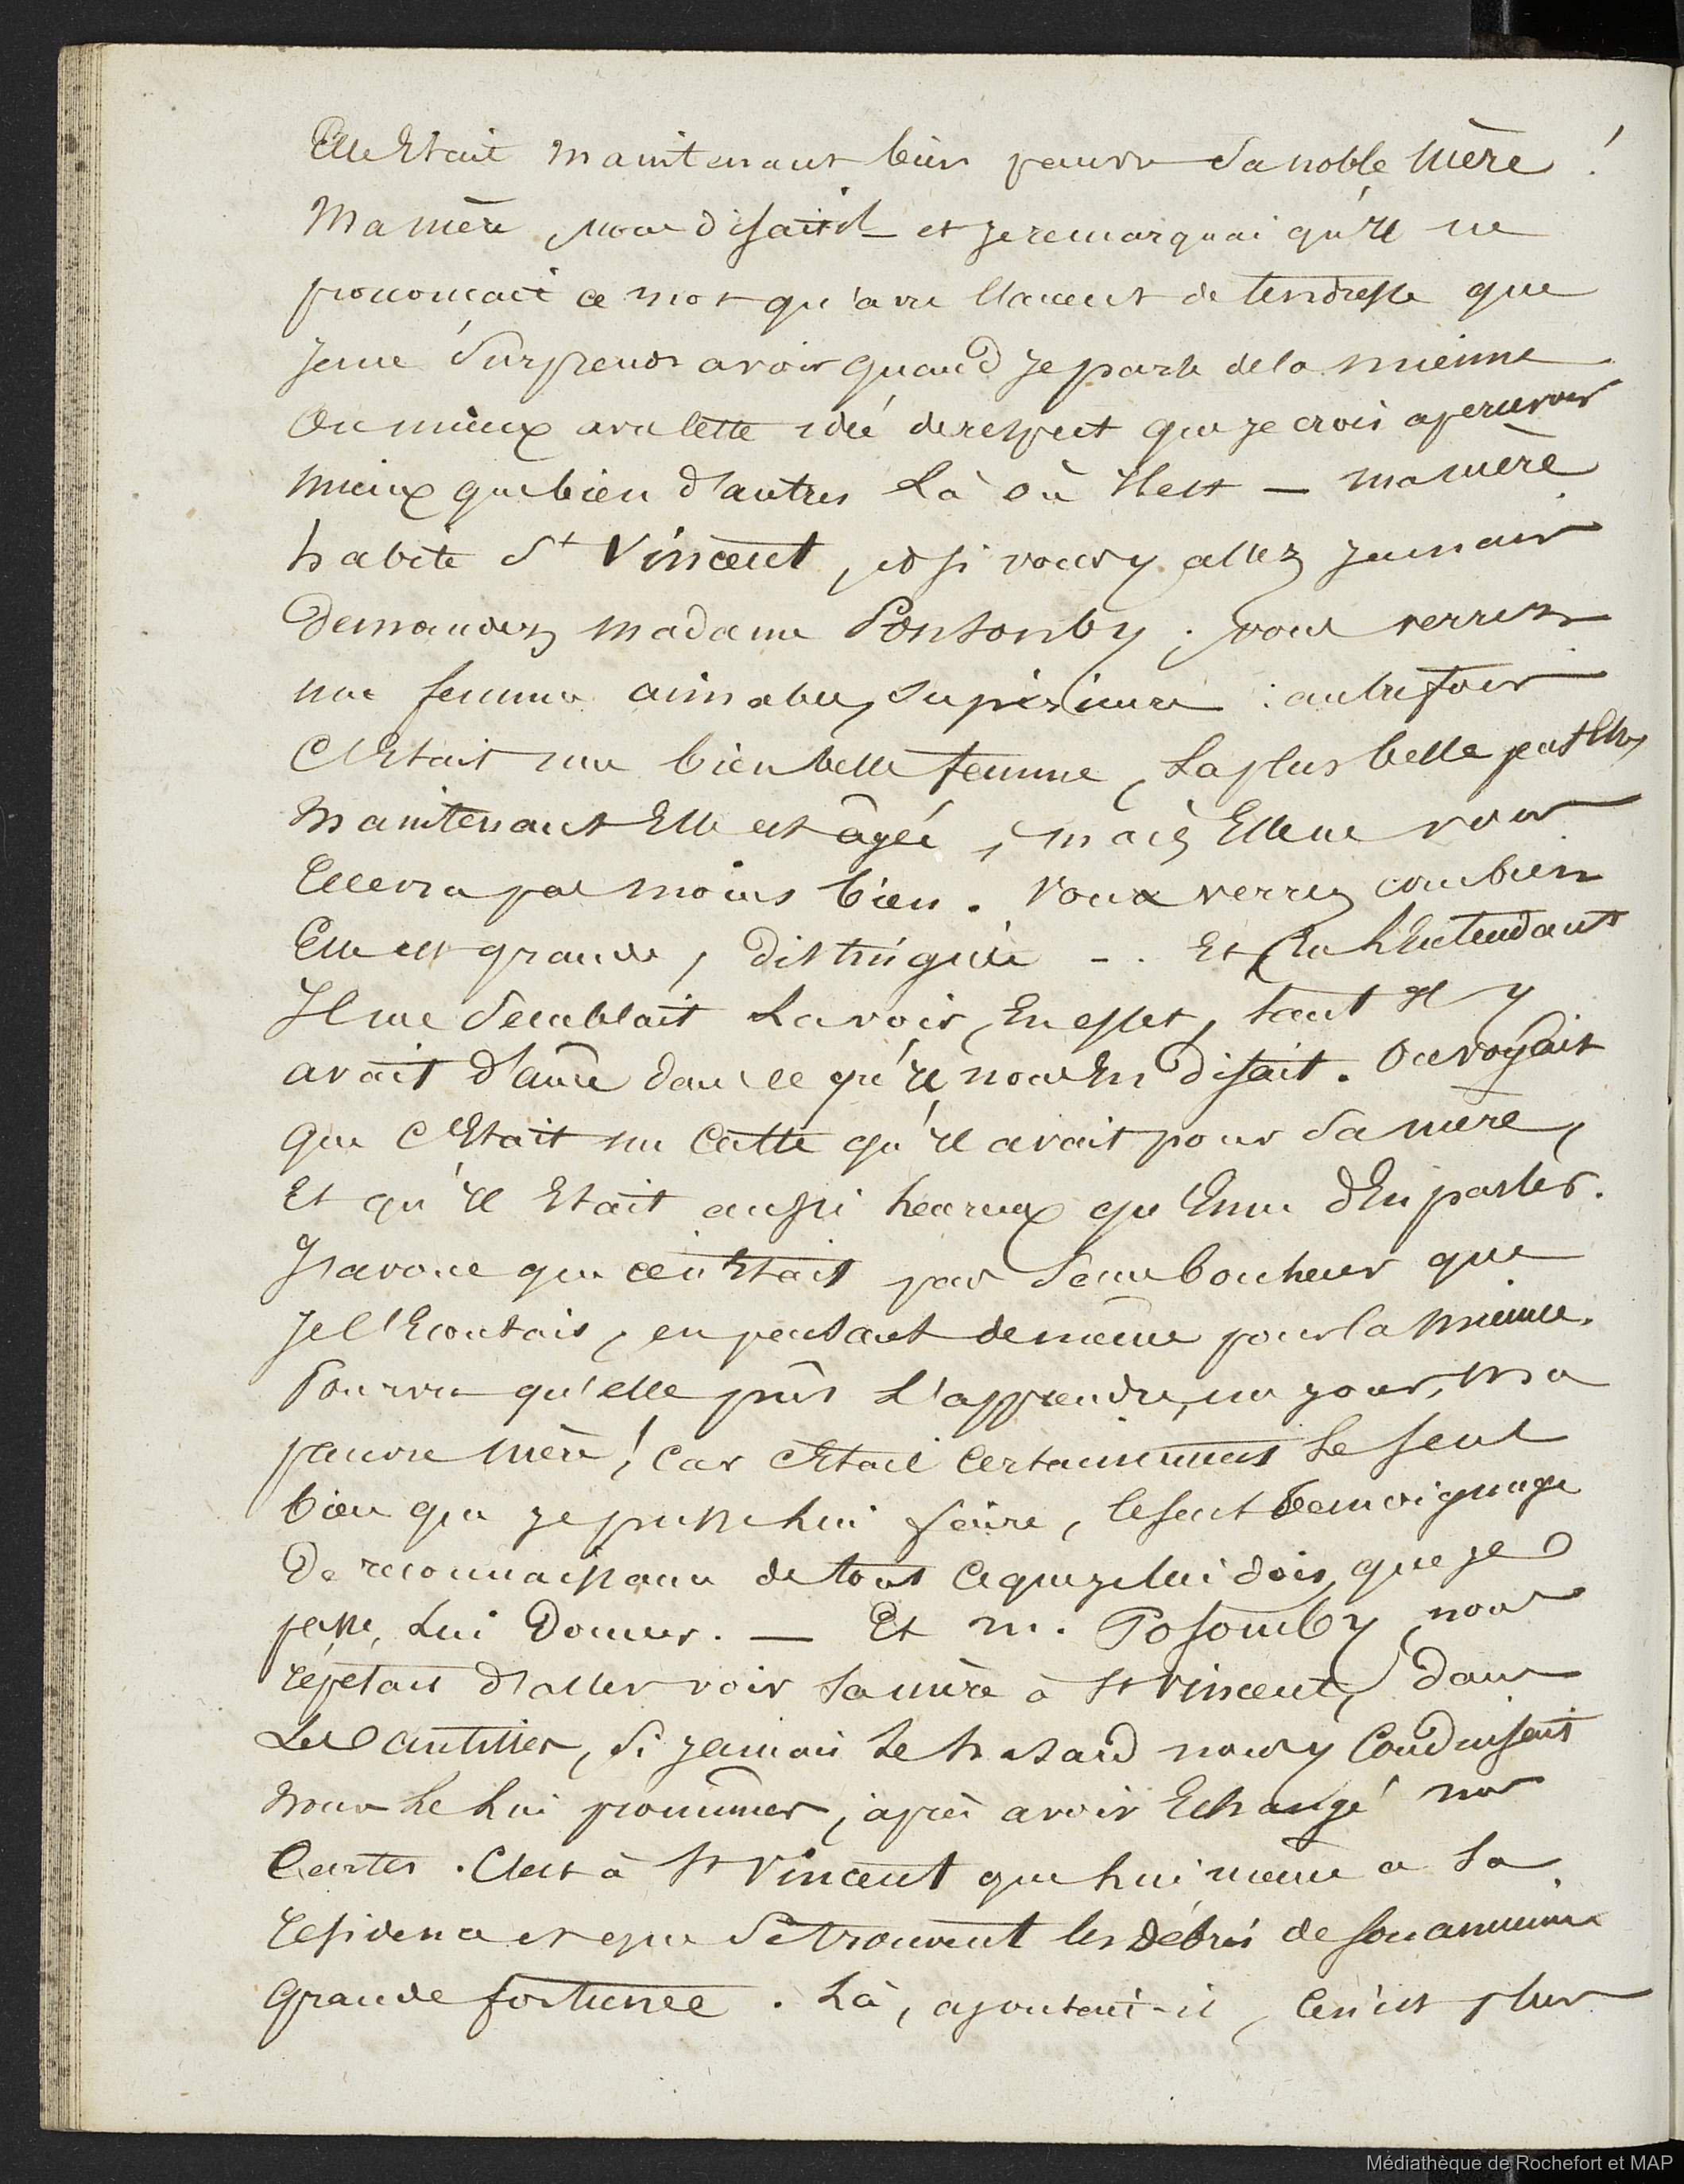 Elle Etait maintenant bien pauvre Sa noble Mère !
Ma mère, nous disait-il et je remarquai qu'il ne
prononcait ce mot qu'avec l'accent de tendresse que
je me Surprends avoir quand je parle de la mienne
Ou mieux avec cette idée de respect que je crois apercevoir
mieux que bien d'autres Là où Il est — ma mère
habite St Vincent, et si vous y allez jamais
Demandez madame Ponsonby. vous verrez
une femme aimable, Supérieure : autrefois
C'Etait une bien belle femme, La plus belle peut Etre,
Maintenant Elle est âgée, mais Elle ne vous
recevra pas moins bien. Vous verrez combien
Elle est grande, distinguée -. Et En L'Entendant
Il me Semblait La voir, En effet, tant Il y
avait d'âme dans ce qu'il nous En disait. On voyait
que C'Etait un Culte qu'il avait pour Sa mère,
Et qu'Il Etait aussi heureux que Emu d'En parler.
J'avoue que ce n'Etait pas Sans bonheur que
Je l'Ecoutais, en pensant de même pour la mienne.
Pourvu qu'elle pût L'apprendre, un jour, Ma
pauvre Mère ! Car c'Etait Certainement Le Seul
bien que je pusse Lui faire, le seul témoignage
De reconnaissance de tout Ce que je lui dois, que je
puisse, Lui Donner. — Et M. Posomby nous
répétait d'aller voir Sa mère à St Vincent, dans
Les antilles, Si jamais Le hasard nous y Conduisait
Nous Le Lui promîmes, après avoir Echangé nos
Cartes. C'est à St Vincent que Lui même a Sa
résidence et que Se trouvent les Débris de Son ancienne
Grande fortune. Là, ajoutait-il, Ce n'est plus
Médiathèque de Rochefort et MAP